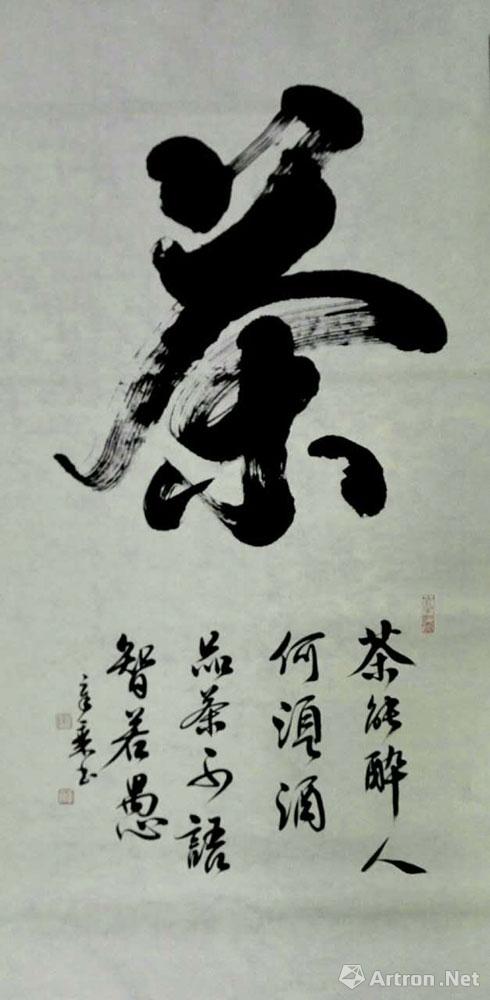 茶
茶能醉人
何須酒
品茶不語
智若愚
Artron.Net